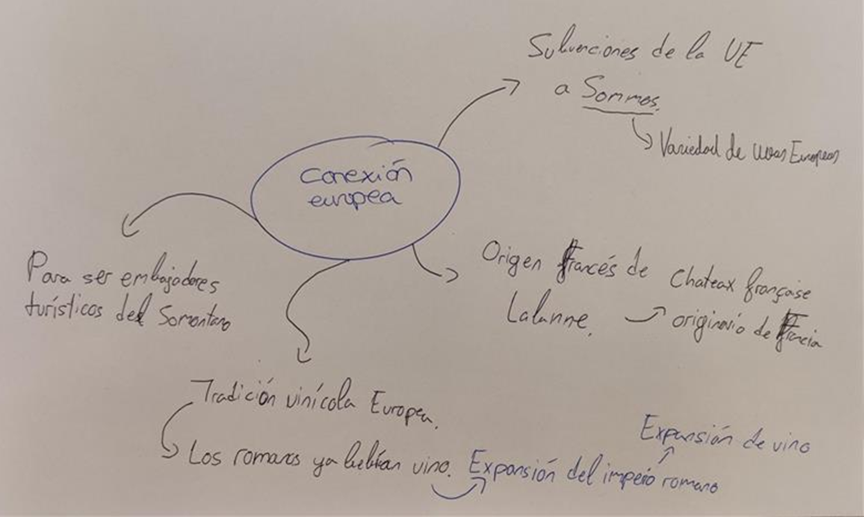 Conexión
europea
Subvenciones de la UE
a Sommos.
Variedad de uvas Europeas
Origen francés de
Lalanne.
Chateax française
originario de Francia
Tradición vinícola Europea.
Los romanos ya bebían vino. Expansión del impeio romano
Expansión de vino
Para ser embajadores
turísticos del Somontano